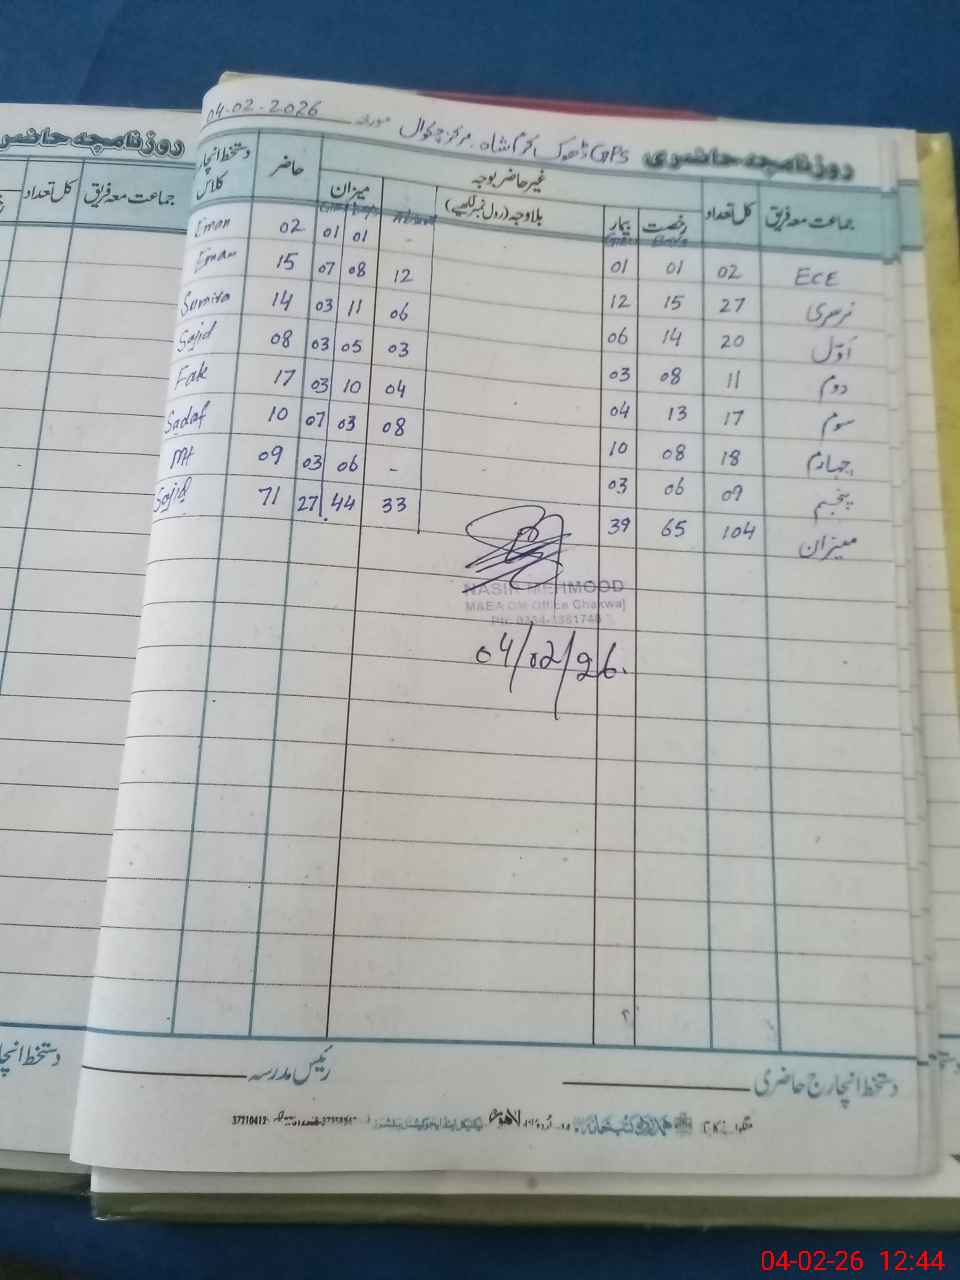 04-02-2026 مورخہ GPS ڈھوک اکرم شاہ مرکز چکوال روزنامچہ حاضری
جماعت معہ فریق کل تعداد غیر حاضر بوجہ میزان حاضر دستخط انچارج کلاس
رخصت بیمار بلاوجہ (رول نمبر لکھیے) Absent
ECE 02 01 01 - 01 01 02 Eman
نرسری 27 15 12 12 08 07 15 Eman
اوّل 20 14 06 06 11 03 14 Sumira
دوم 11 08 03 03 05 03 08 Sajid
سوم 17 13 04 04 10 03 17 Fak
چہارم 18 08 10 08 03 07 10 Sadaf
پنجم 09 06 03 - 06 03 09 MA
میزان 104 65 39 33 44 27 71 Sajid
NASIR MEHMOOD
M&EA DM Office Chakwal
04/02/26.
دستخط انچارج حاضری رئیس مدرسہ
37310412
روزنامچہ حاضری
جماعت معہ فریق کل تعداد
04-02-26 12:44